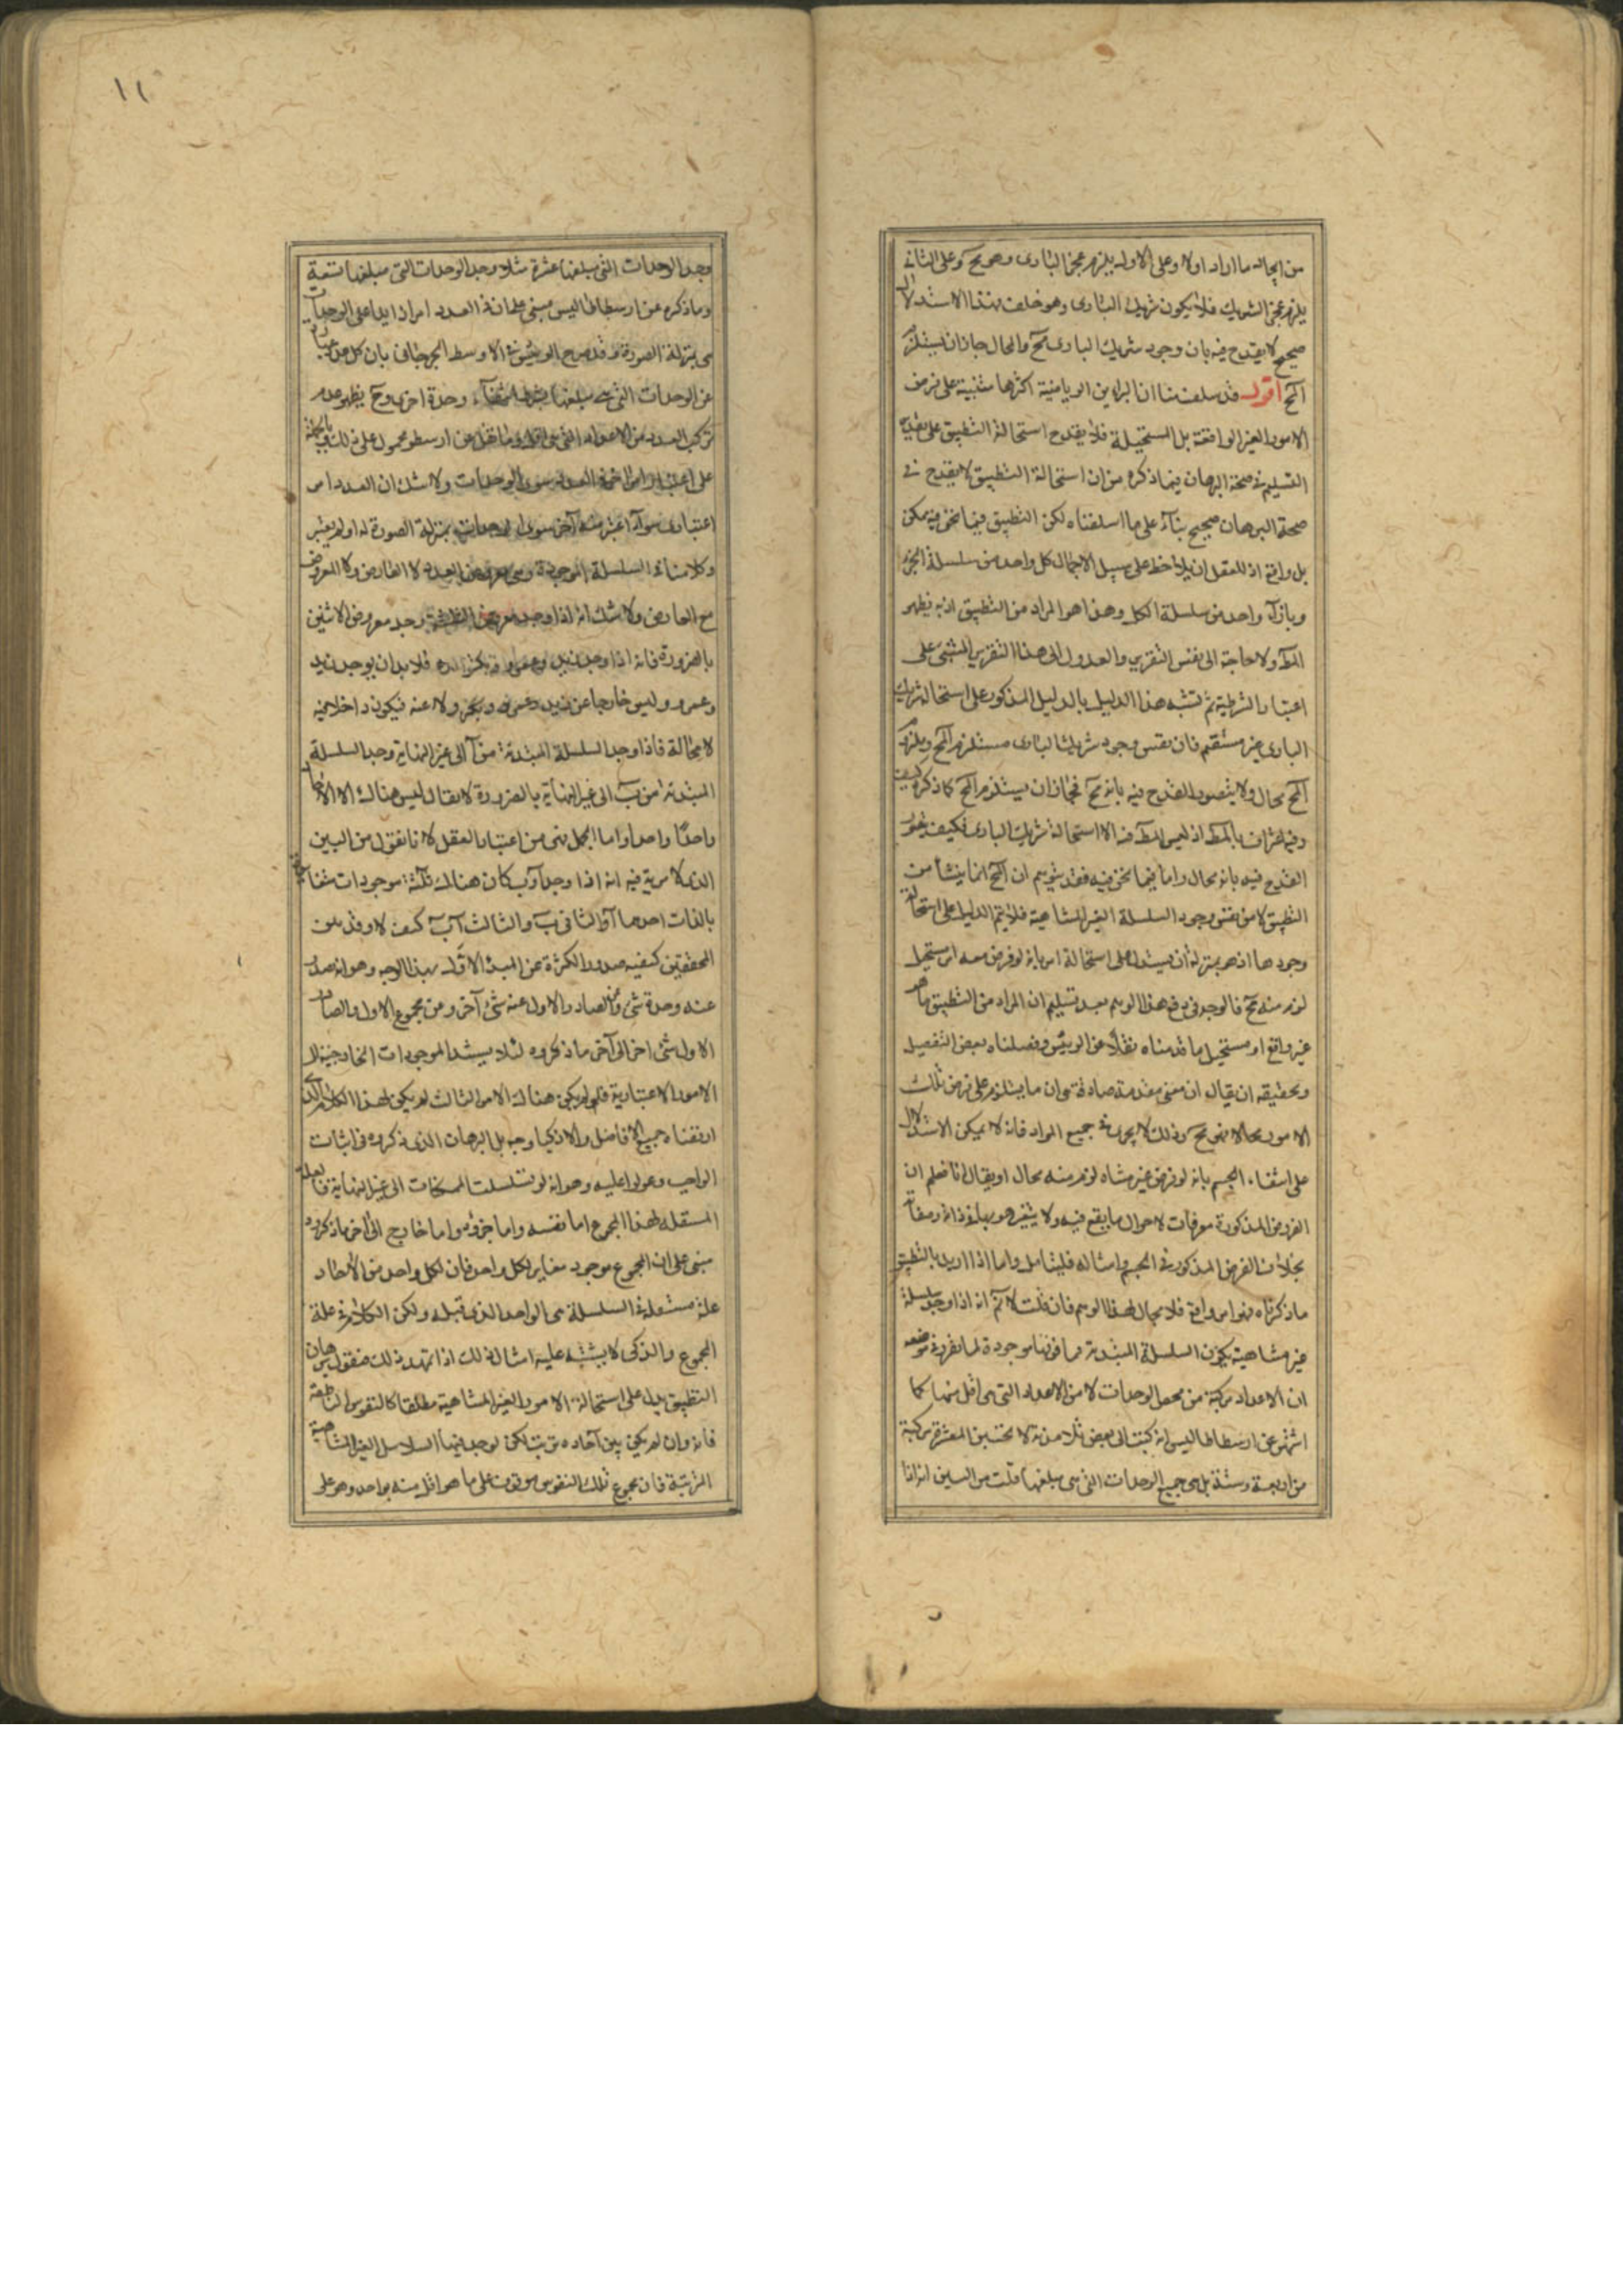 من ايجاد ما اراد اولا وعلى الاول يلزم عجز البارى وهو مح وعلى الثانى
يلزم عجز الشريك فلا يكون شريك البارى وهو خلف فهذا الاستدلال
صحيح لا يقدح فيه بان وجود شريك البارى مح والمحال جاز ان يستلزم
المح اقول قد سلف منا ان البراهين الرياضية اكثرها مبنية على فرض
الامور الغير الواقعة بل المستحيلة فلا يقدح استحالة التطبيق على تقدير
التسليم فى صحة البرهان فما ذكره من ان استحالة التطبيق لا يقدح فى
صحة البرهان صحيح بناء على ما اسلفناه لكن التطبيق فيما نحن فيه ممكن
بل واقع اذ للعقل ان يلاحظ على سبيل الاجمال كل واحد من سلسلة الجزء
وبازاء واحد من سلسلة الكل وهذا هو المراد من التطبيق اذ به يظهر
المط ولا حاجة الى نفس التقرير والعدول الى هذا التقرير المبتنى على
اعتبار الشرطية ثم تشبه هذا الدليل بالدليل المذكور على استحالة شريك
البارى غير مستقيم فان نفس وجود شريك البارى مستلزم المح ويلزم
المح محال ولا يتصور القدح فيه بانه مح فجاز ان يستلزم المح كما ذكره كيف
وفيه اعتراف بالمط اذ ليس المط فيه الا استحالة شريك البارى فكيف يتصور
القدح فيه بانه محال واما فيما نحن فيه فقد يتوهم ان المح انما ينشأ من
التطبيق لا من نفس وجود السلسلة الغير المتناهية فلا يتم الدليل على استحالة
وجودها اذ هو بمنزلة ان يستدل على استحالة امر بانه لو فرض معه امر مستحيل
لزم منه مح فالوجه فى دفع هذا الوهم بعد تسليم ان المراد من التطبيق ما هو
غير واقع او مستحيل ما قدمناه نقلا عن الرئيس وفصلناه بعض التفصيل
وتحقيقه ان يقال ان معنى مقدمة صادقة هى ان ما يستلزم على فرض تلك
الامور محالا فهو مح وذلك لا يجرى فى جميع المواد فانه لا يمكن الاستدلال
على امتناع الجسم بانه لو فرض غير متناه لزم منه محال او يقال انا نعلم ان
الفروض المذكورة معرفات لاحوال ما يقع فيه ولا يتغير هو بها فى ذاته وصفاته
بخلاف الفرض المذكور فى الجسم وامثاله فليتامل واما اذا اريد بالتطبيق
ما ذكرناه فهو امر واقع فلا مجال لهذا الوهم فان قلت لا نم انه اذا وجد سلسلة
غير متناهية يكون السلسلة المبتدئة مما فوقها موجودة لما تقرر فى موضعه
ان الاعداد مركبة من محض الوحدات لا من الاعداد التى هى اقل منها كما
اشتهر عن ارسطاطاليس انه كتب الى بعض تلامذته لا تحسبن العشرة مركبة
من اربعة وستة بل هى جميع الوحدات التى هى مبلغها قلت من البين انه اذا
١١
وجد الوحدات التى مبلغها عشرة مثلا وجد الوحدات التى مبلغها تسعة
وما ذكره عن ارسطاطاليس مبنى على ان فى العدد امرا زايدا على الوحدات
هى بمنزلة الصورة وقد صرح الاوسط الجرجانى بان كل عدد عبارة
عن الوحدات التى هى مبلغها وحدة اخرى وح يظهر عدم
تركب العدد من الاعداد التى هى اقل وما نقل عن ارسطو محمول على ذلك وبالجملة
على اعتبار امر فى العدد سوى الوحدات ولا شك ان العدد امر
اعتبارى سواء اعتبر فيه آخر سوى الوحدات بمنزلة الصورة له او لم يعتبر
وكلامنا فى السلسلة الموجودة وهى معروض العدد لا العارض ولا المعروض
مع العارض ولا شك انه اذا وجد معروض الثلثة وجد معروض الاثنين
بالضرورة فانه اذا وجد زيد وعمرو وبكر فلا بد ان يوجد زيد
وعمرو وليس خارجا عن زيد وعمرو وبكر ولا عنه فيكون داخلا فيه
لا محالة فاذا وجد السلسلة المبتدئة من آ الى غير النهاية وجد السلسلة
المبتدئة من ب الى غير النهاية بالضرورة لا يقال ليس هناك الا الآحاد
واحدا واحدا واما الجمل فهى من اعتبار العقل لانا نقول من البين
الذى لا مرية فيه انه اذا وجد آ و ب كان هناك ثلثة موجودات متغايرة
بالذات احدها آ والثانى ب والثالث آ ب كيف لا وقد بين
المحققين كيفية صدور الكثرة عن المبدء الاول بهذا الوجه وهو انه صدر
عنه وحدة شئ وعن الصادر الاول عنه شئ آخر ومن مجموع الاول والصادر
الاول شئ اخر الى آخر ما ذكروه لئلا يستند الموجودات الخارجية الى
الامور الاعتبارية فلو لم يكن هناك الامر الثالث لم يكن لهذا الكلام الذى
ارتضاه جميع الافاضل والاذكيا وجه بل البرهان الذى ذكروه فى اثبات
الواجب وعولوا عليه وهو انه لو تسلسلت الممكنات الى غير النهاية فالعلة
المستقلة لهذا المجموع اما نفسه واما جزؤه واما خارج الى آخر ما ذكروه
مبنى على ان المجموع موجود مغاير لكل واحد فان لكل واحد من الآحاد
علة مستقلة فى السلسلة هى الواحد الذى قبله ولكن الكلام فى علة
المجموع والذكى لا يشتبه عليه امثال ذلك اذا تمهد ذلك فنقول برهان
التطبيق يدل على استحالة الامور الغير المتناهية مطلقا كالنفوس الناطقة
فانه وان لم يكن بين آحاده ترتب لكن يوجد فيها السلاسل الغير المتناهية
المرتبة فان مجموع تلك النفوس موقوف على ما هو اقل منه بواحد وهو على